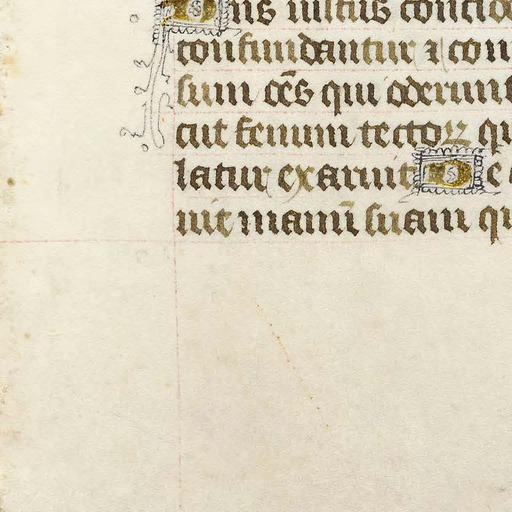 Dns iustus concid
confundantur ⁊ con
sum oēs qui oderunt
cut fenum tectoꝝ qu
latur exaruit De
uit manū suam qu